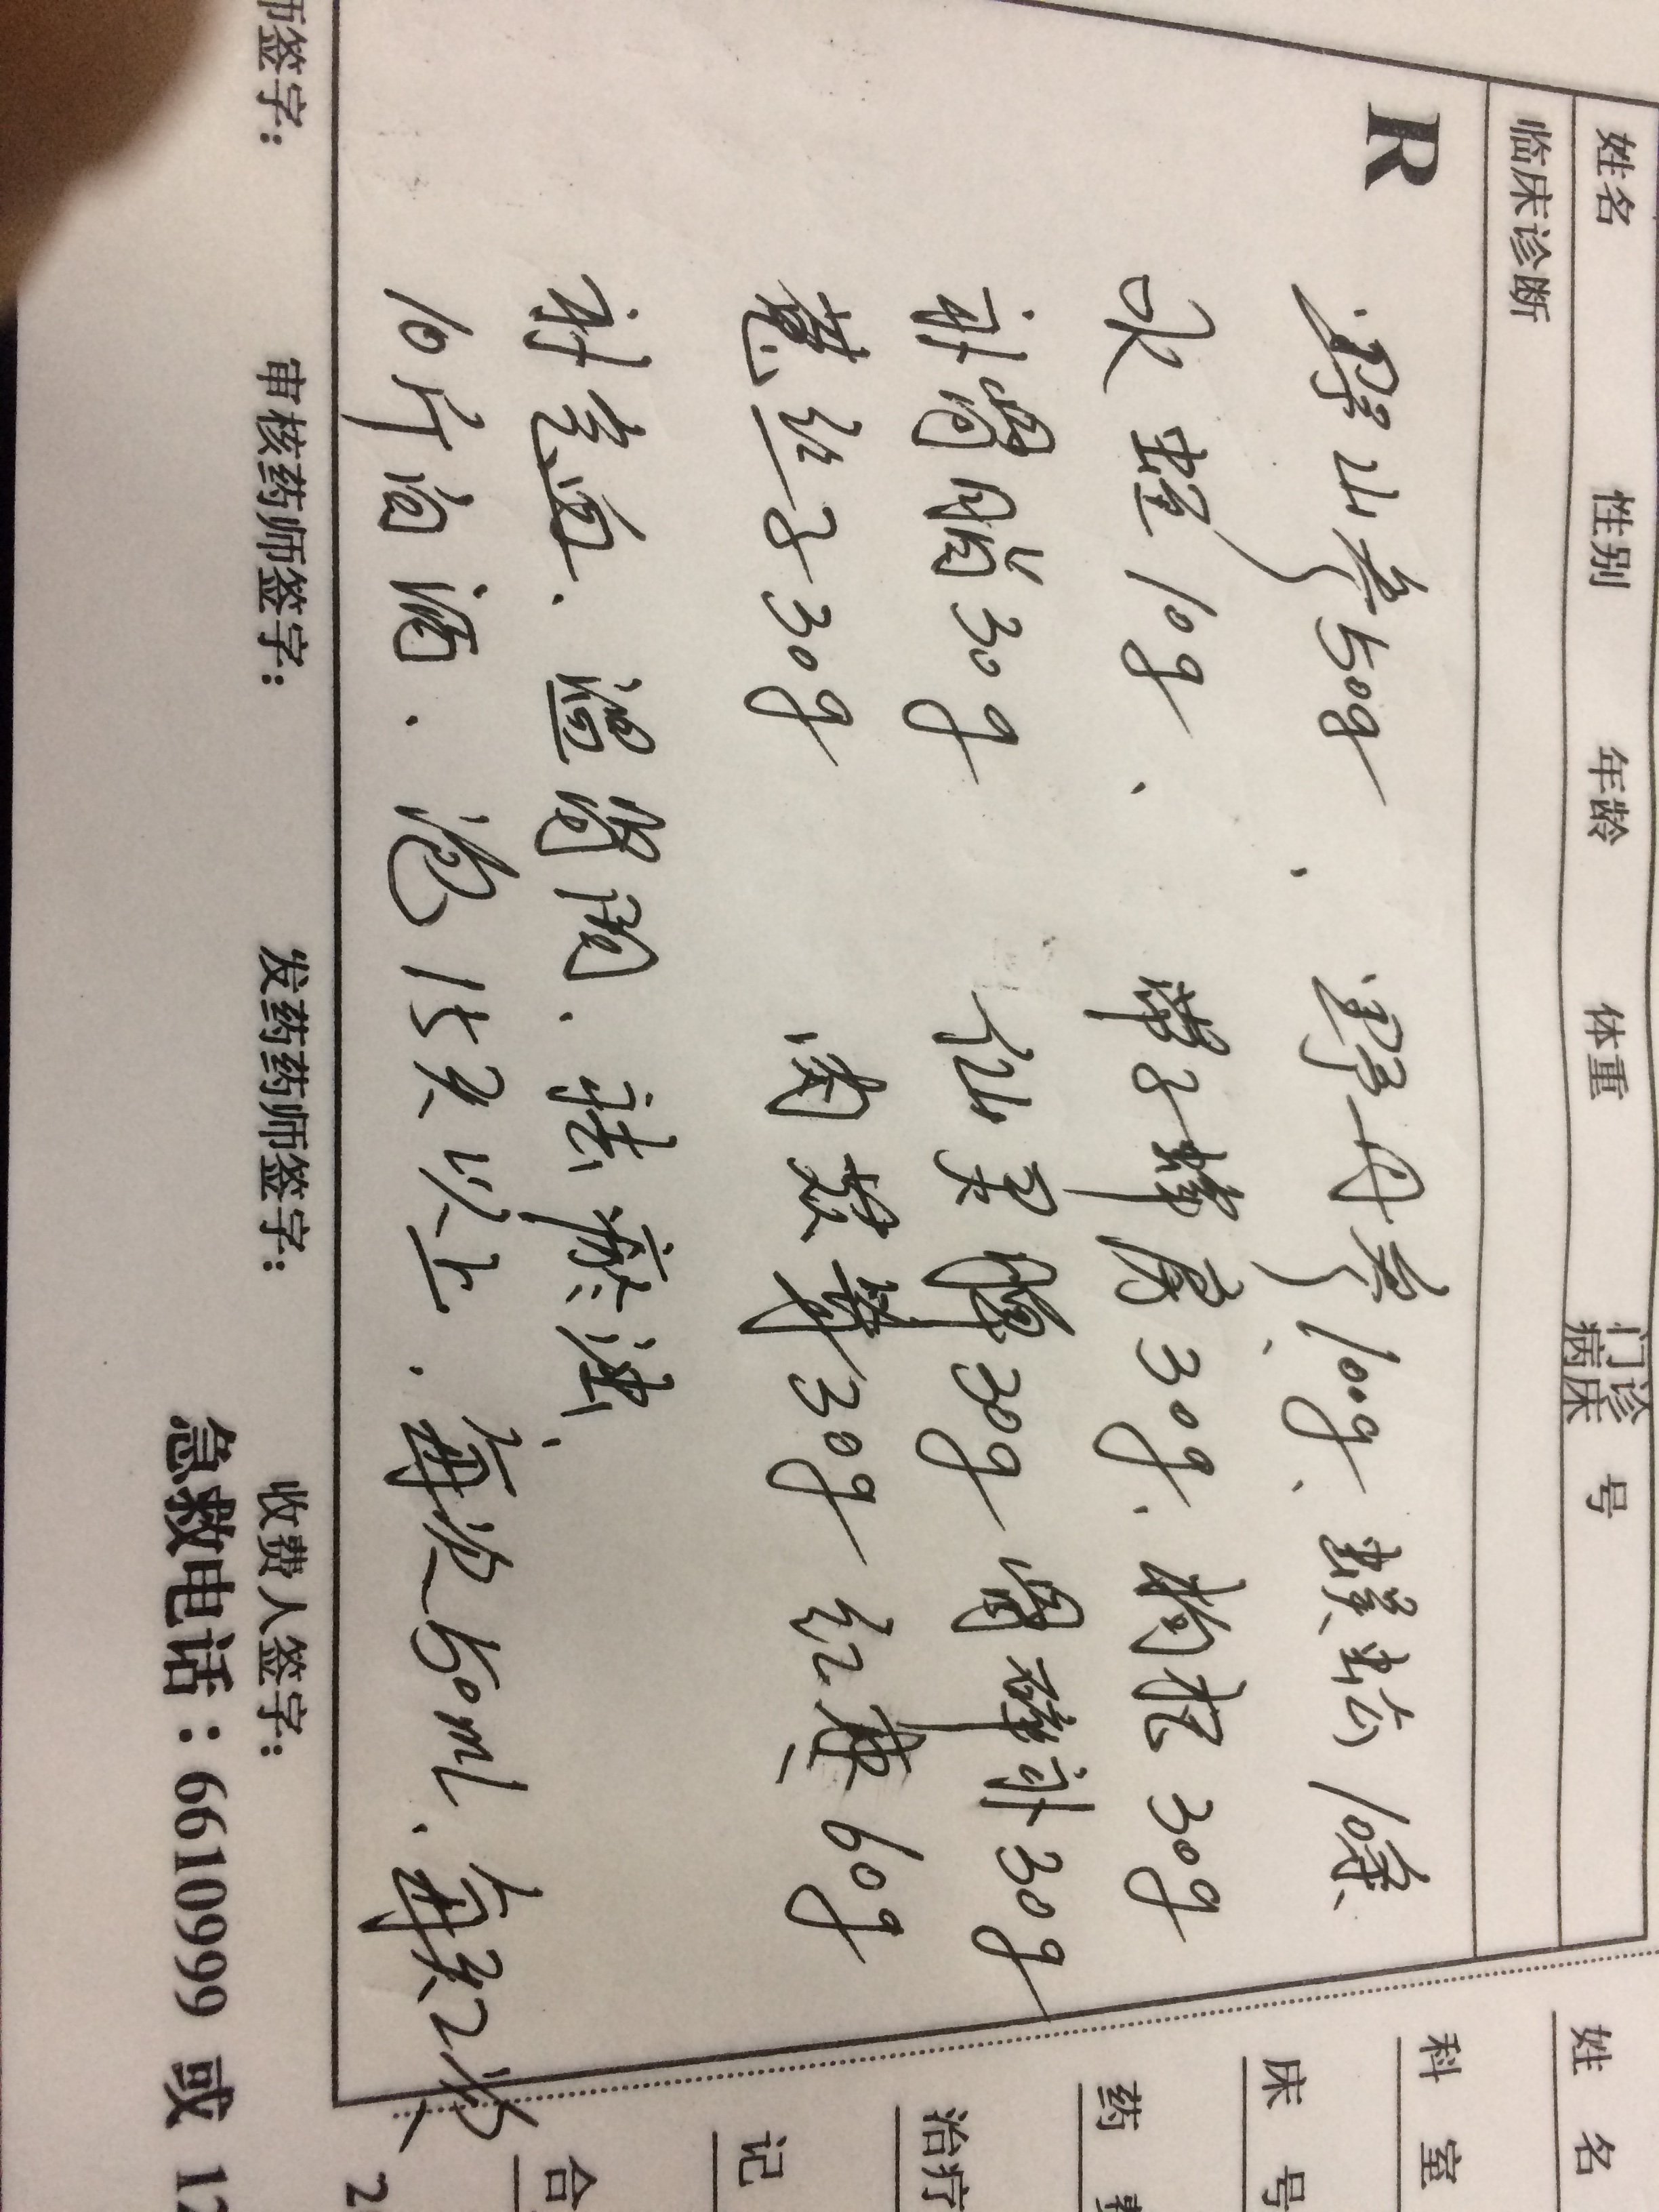 姓名 性别 年龄 体重 门诊病床 号
临床诊断
R
野山参50g、野丹参100g、
水蛭10g、带子蜂房30g、
补骨脂30g 仙灵脾30g 骨碎补30g
30g 30g 红 60g
补气血、温肾阳、祛瘀
10斤白酒、泡15天以上、每次50ml、每天2次
师签字: 审核药师签字: 发药药师签字: 收费人签字:
急救电话:6610999 或 12
姓 名
科 室
床 号
药
治疗
记
合
2